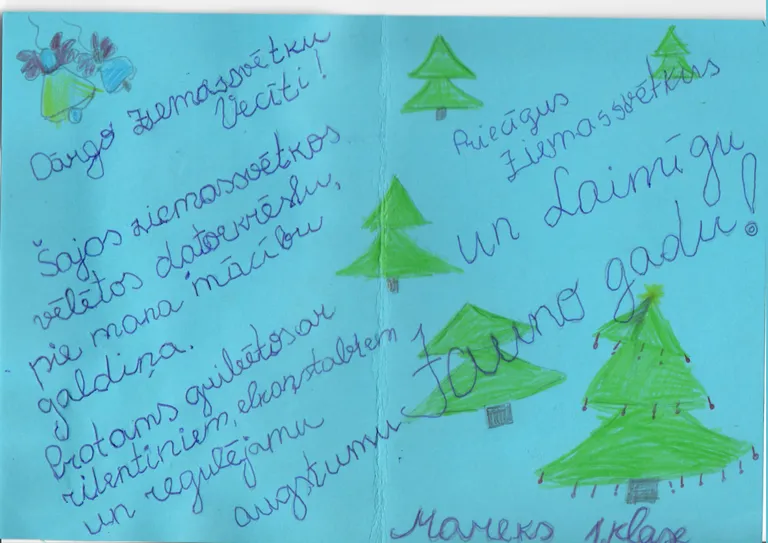 Dārgo Ziemassvētku
Vecīti!
Šajos ziemassvētkos
vēlētos datorkrēslu,
pie mana mācību
galdiņa.
Protams gribētos ar
ritentiņiem, elkoņstabiem
un regulējamu
augstumu
Priecīgus
Ziemassvētkus
un Laimīgu
Jauno gadu!
Mareks 1.klase